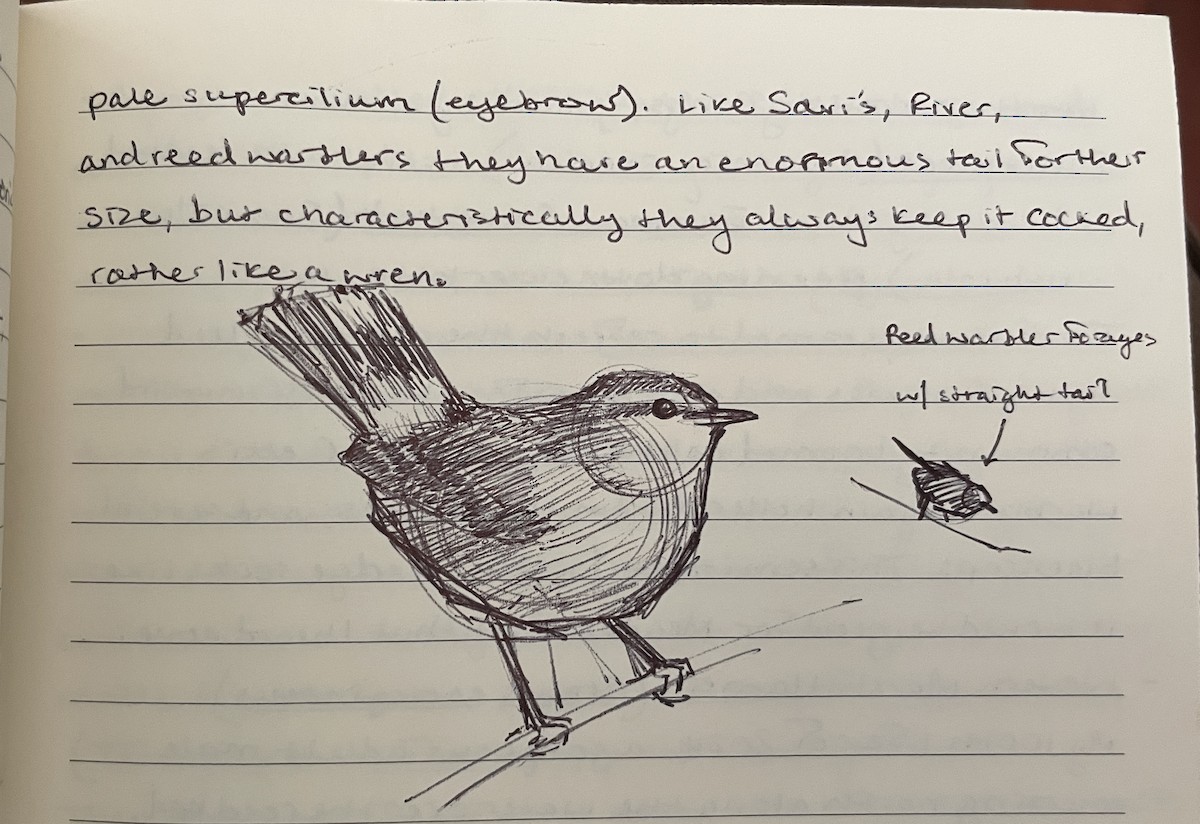 pale supercilium (eyebrow). Like Savi's, River,
and reed warblers they have an enormous tail for their
size, but characteristically they always keep it cocked,
rather like a wren.
Reed warbler forages
w/ straight tail